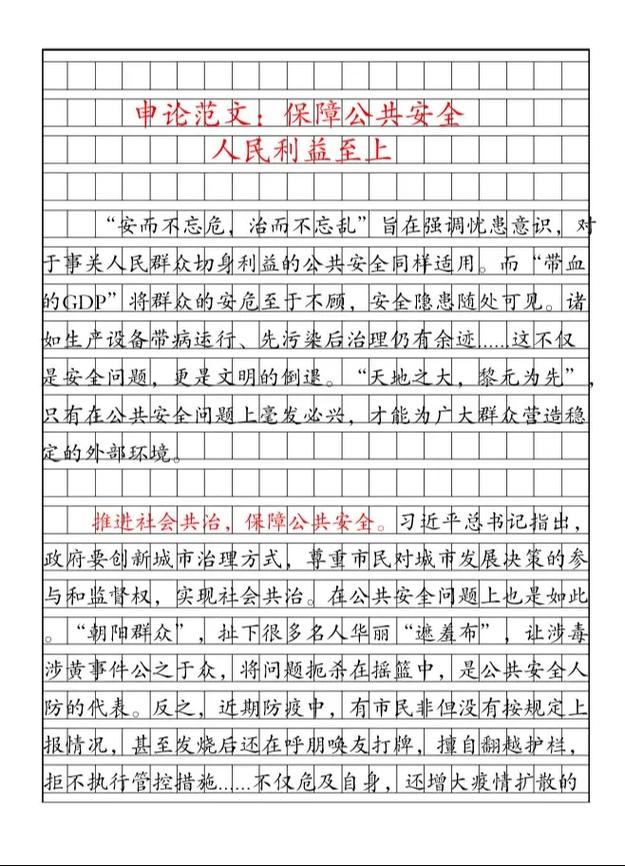 申论范文：保障公共安全
人民利益至上
“安而不忘危，治而不忘乱”旨在强调忧患意识，对
于事关人民群众切身利益的公共安全同样适用。而“带血
的GDP”将群众的安危至于不顾，安全隐患随处可见。诸
如生产设备带病运行、先污染后治理仍有余迹......这不仅
是安全问题，更是文明的倒退。“天地之大，黎元为先”，
只有在公共安全问题上毫发必兴，才能为广大群众营造稳
定的外部环境。
推进社会共治，保障公共安全。习近平总书记指出，
政府要创新城市治理方式，尊重市民对城市发展决策的参
与和监督权，实现社会共治。在公共安全问题上也是如此
。“朝阳群众”，扯下很多名人华丽“遮羞布”，让涉毒
涉黄事件公之于众，将问题扼杀在摇篮中，是公共安全人
防的代表。反之，近期防疫中，有市民非但没有按规定上
报情况，甚至发烧后还在呼朋唤友打牌，擅自翻越护栏，
拒不执行管控措施......不仅危及自身，还增大疫情扩散的